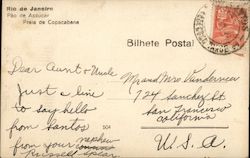 Rio de Janeiro
Pão de Assucar
Praia de Copacabana
Bilhete Postal
Dear Aunt & Uncle
Just a line
to say hello
from Santos
from your nephew
Russell
504
Mr and Mrs Vanderveer
724 Sanchez St
San Francisco
California
U.S.A.